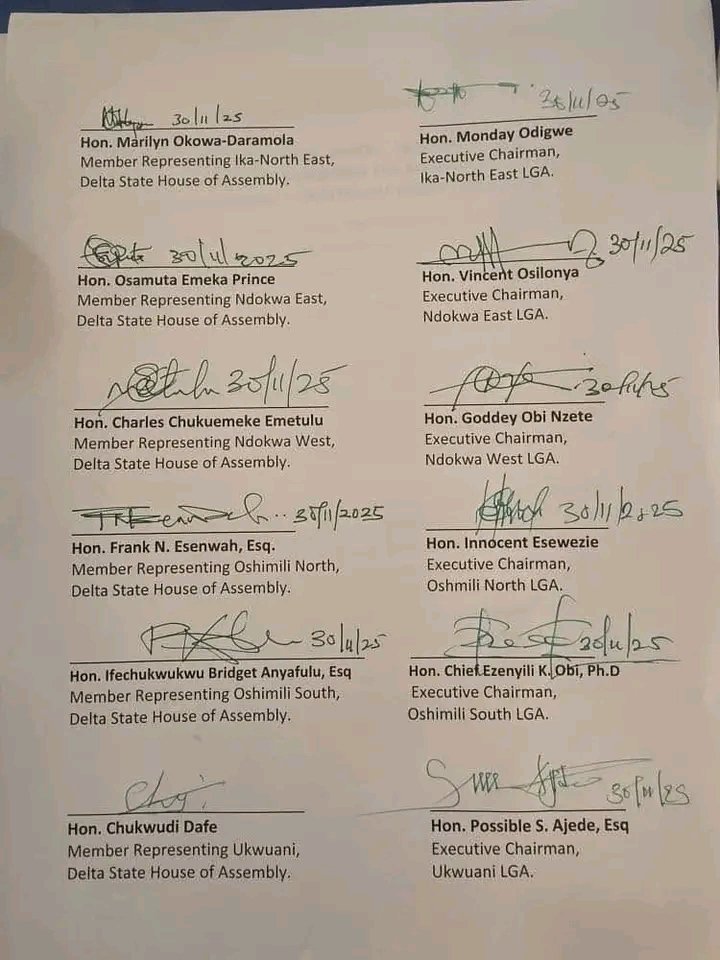 30/11/25
Hon. Marilyn Okowa-Daramola
Member Representing Ika-North East,
Delta State House of Assembly.
30/11/25
Hon. Monday Odigwe
Executive Chairman,
Ika-North East LGA.
30/11/2025
Hon. Osamuta Emeka Prince
Member Representing Ndokwa East,
Delta State House of Assembly.
30/11/25
Hon. Vincent Osilonya
Executive Chairman,
Ndokwa East LGA.
30/11/25
Hon. Charles Chukuemeke Emetulu
Member Representing Ndokwa West,
Delta State House of Assembly.
30/11/25
Hon. Goddey Obi Nzete
Executive Chairman,
Ndokwa West LGA.
30/11/2025
Hon. Frank N. Esenwah, Esq.
Member Representing Oshimili North,
Delta State House of Assembly.
30/11/2025
Hon. Innocent Esewezie
Executive Chairman,
Oshmili North LGA.
30/11/25
Hon. Ifechukwukwu Bridget Anyafulu, Esq
Member Representing Oshimili South,
Delta State House of Assembly.
30/11/25
Hon. Chief Ezenyili K. Obi, Ph.D
Executive Chairman,
Oshimili South LGA.
Hon. Chukwudi Dafe
Member Representing Ukwuani,
Delta State House of Assembly.
30/11/25
Hon. Possible S. Ajede, Esq
Executive Chairman,
Ukwuani LGA.